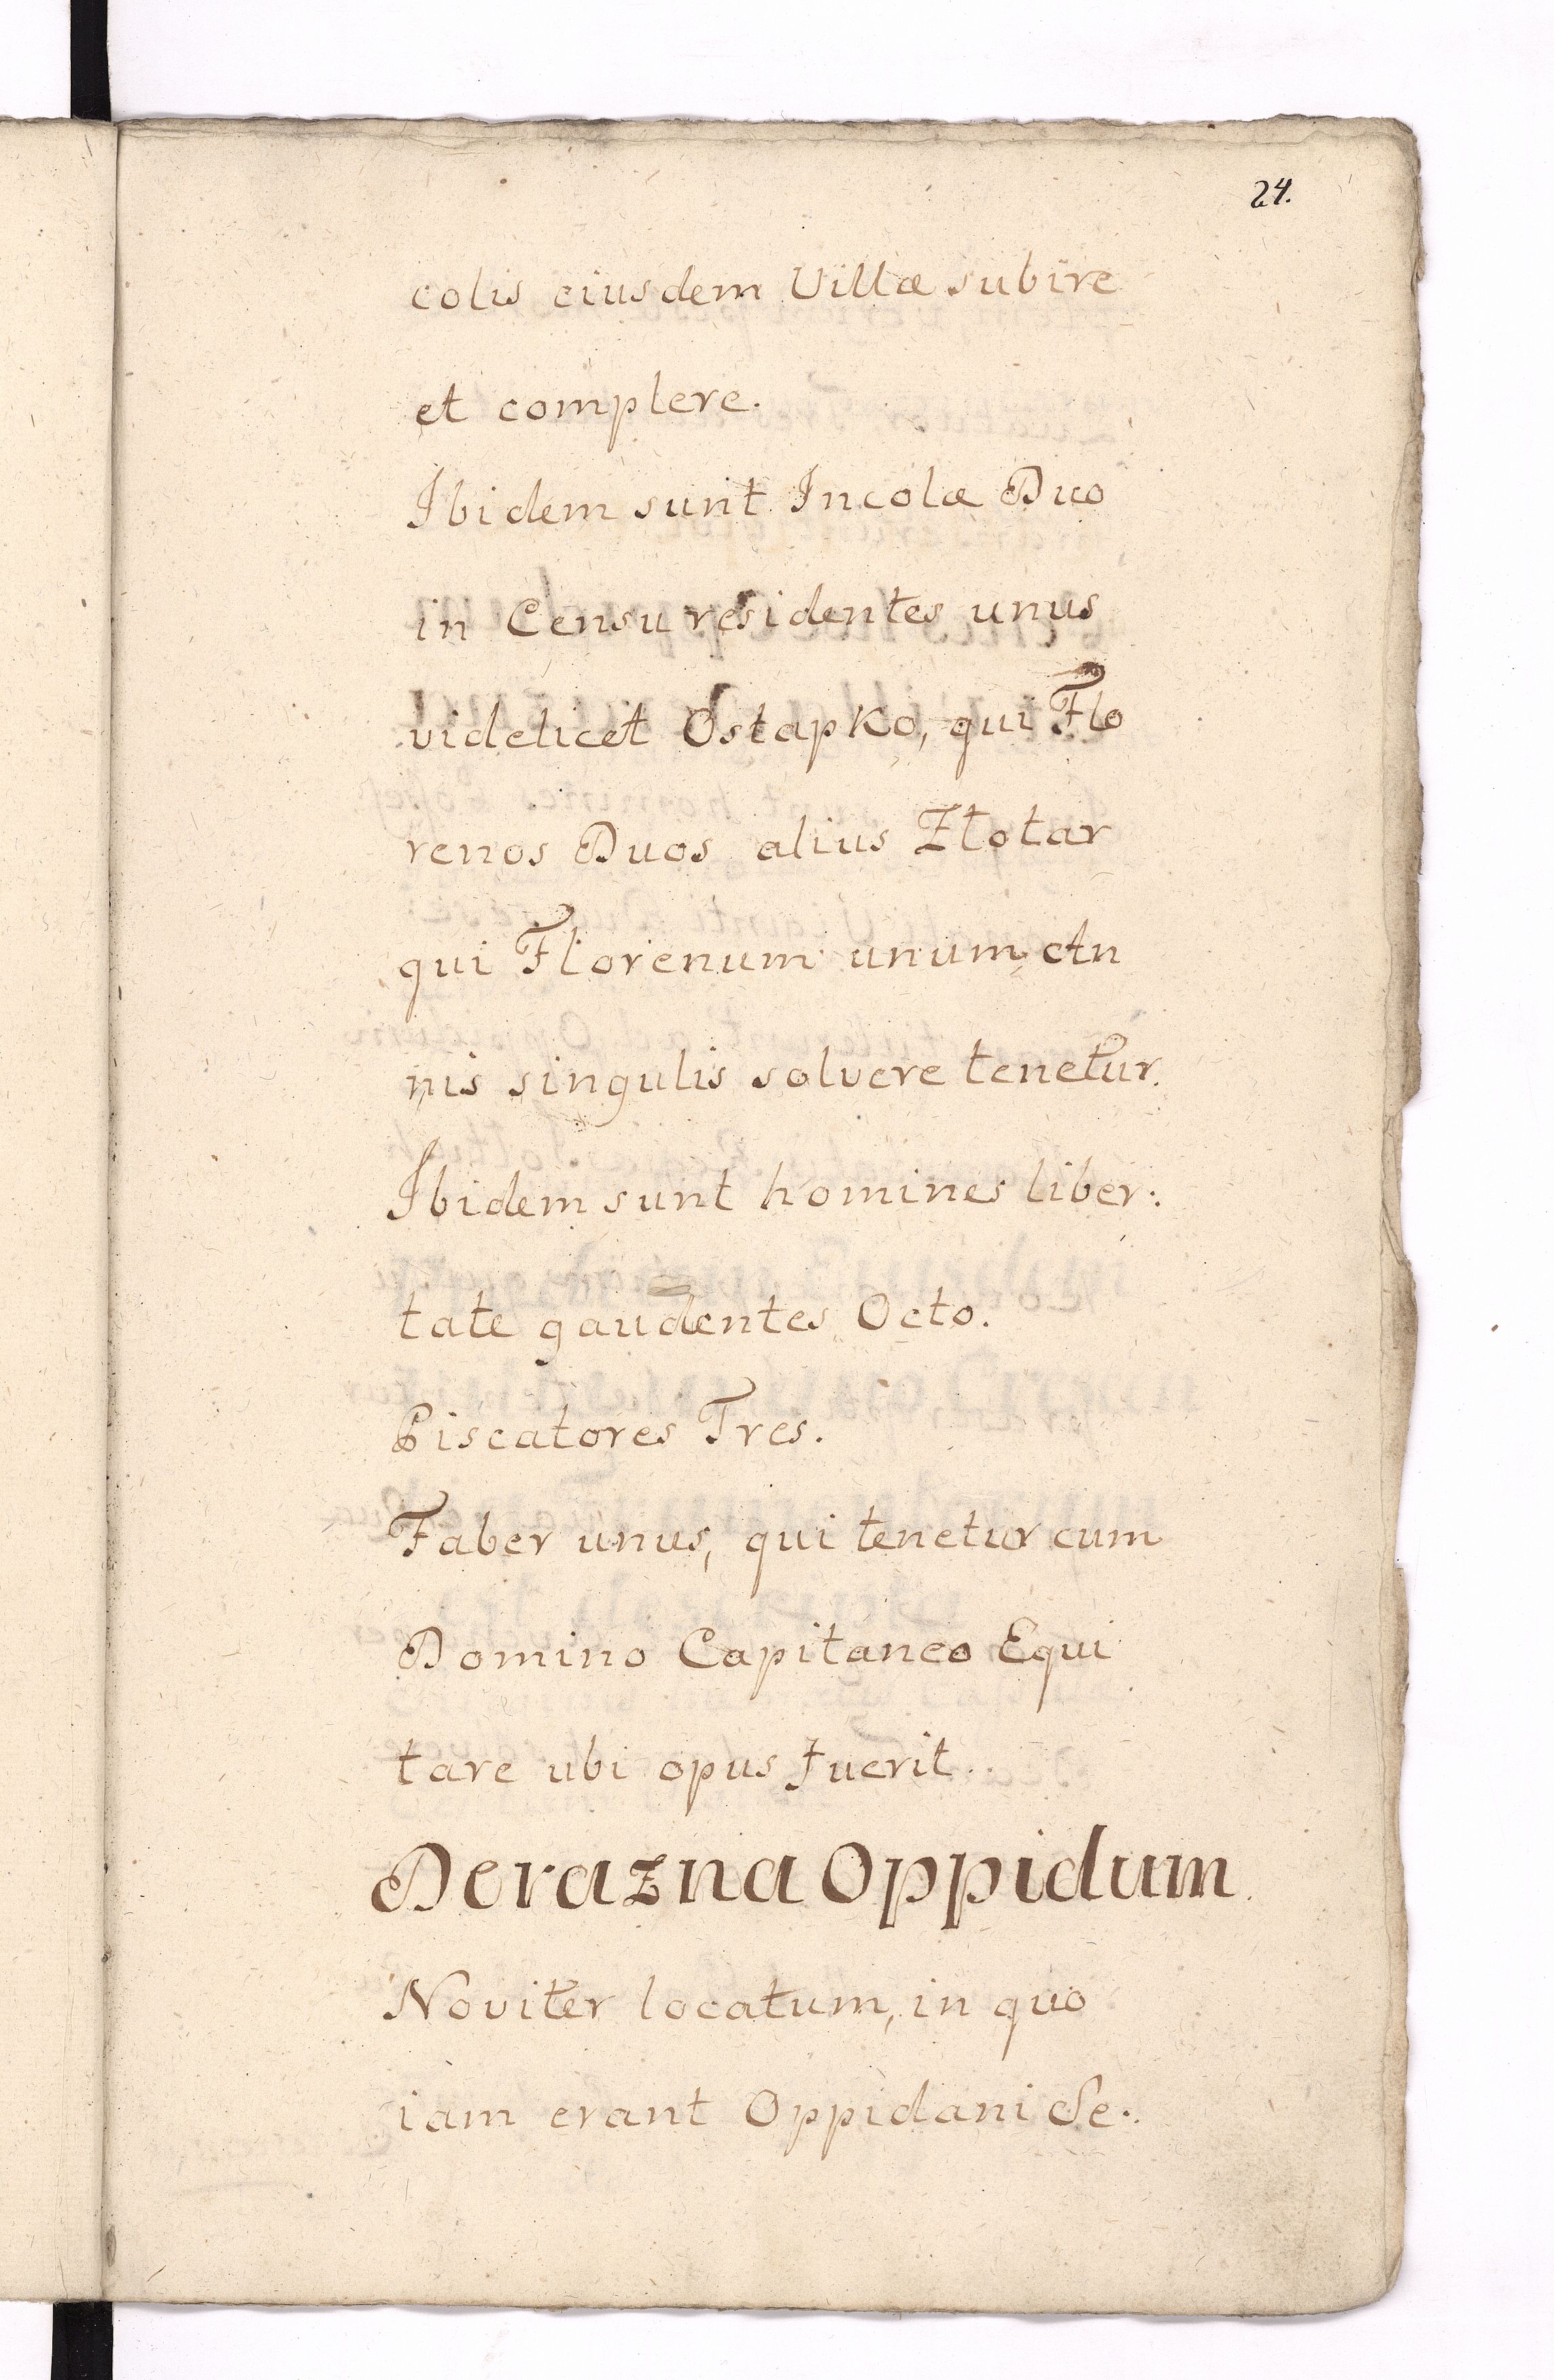 24.
colis eiusdem Villæ subire
et complere.
Ibidem sunt Incolæ Duo
in Censu residentes unus
videlicet Ostapko, qui Flo
renos Duos alius Złotar
qui Florenum unum An
nis singulis solvere tenetur.
Ibidem sunt homines liber:
tate gaudentes Octo.
Piscatores Tres.
Faber unus, qui tenetur cum
Domino Capitaneo Equi
tare ubi opus fuerit.
Derazna Oppidum
Noviter locatum, in quo
iam erant Oppidani Se: